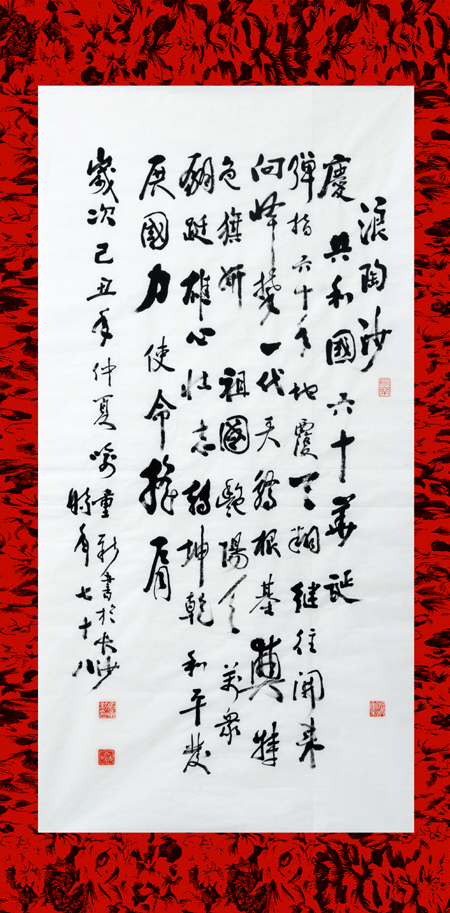 浪陶沙
慶共和國六十華誕
彈指六十年地覆天翻继往開来
向峰攀一代天骄根基奠特
色旗妍祖國艷陽天萬衆
翩跹雄心壮志转坤乾和平發
展國力使命擔肩
歲次己丑年仲夏重新書於长沙
時年七十八